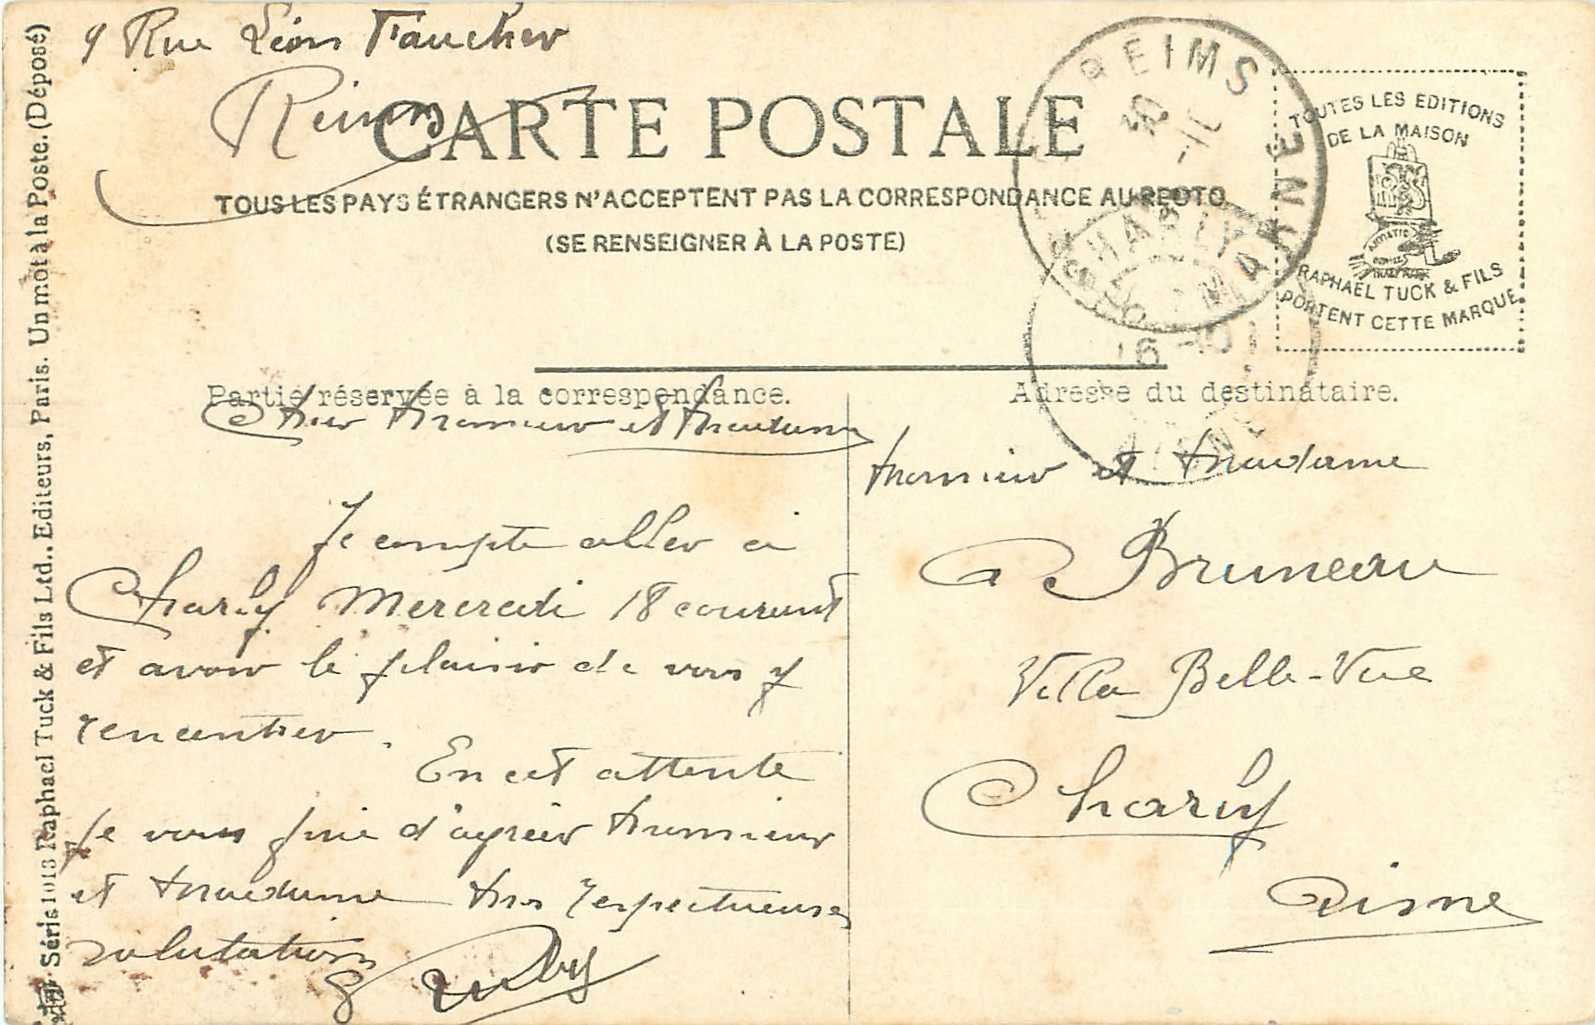 9 Rue Léon Faucher
Reims
CARTE POSTALE
TOUS LES PAYS ÉTRANGERS N'ACCEPTENT PAS LA CORRESPONDANCE AU RECTO
(SE RENSEIGNER À LA POSTE)
REIMS
MARNE
CHARLY
AISNE
TOUTES LES EDITIONS
DE LA MAISON
RAPHAEL TUCK & FILS
PORTENT CETTE MARQUE
Partie réservée à la correspondance.
Cher Monsieur et Madame
Je compte aller à
Charly Mercredi 18 courant
et avoir le plaisir de vous y
rencontrer.
En cet attente
Je vous prie d'agréer Monsieur
et Madame mes respectueuses
salutations
Adresse du destinataire.
Monsieur et Madame
Bruneau
Villa Belle-Vue
Charly
Aisne
Série 1013 Raphael Tuck & Fils Ltd., Editeurs, Paris. Un mot à la Poste. (Déposé)